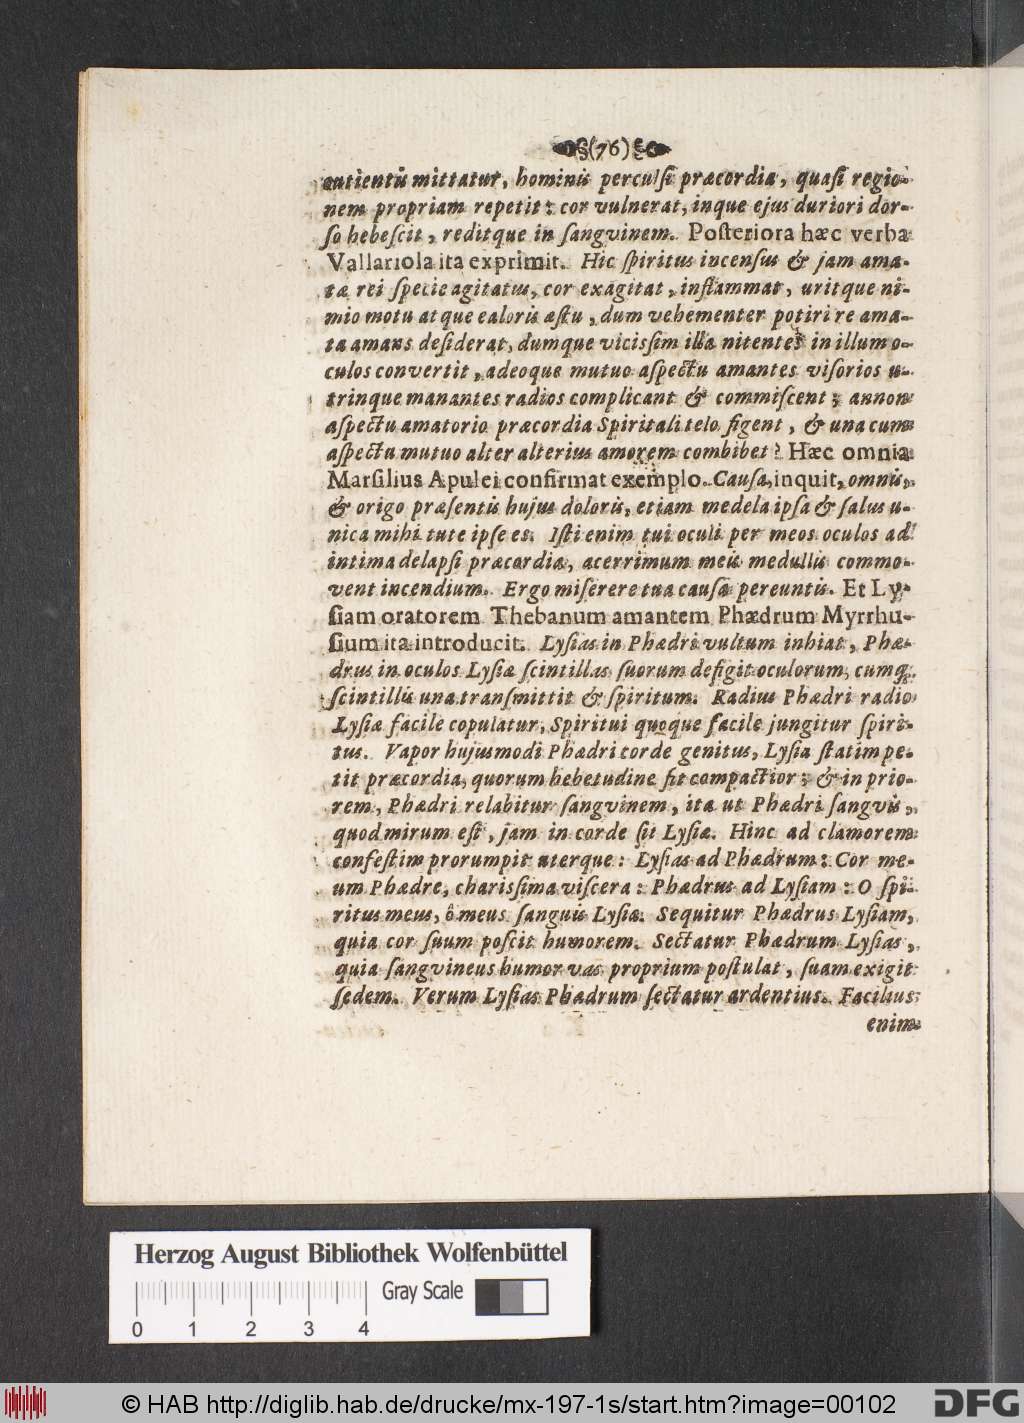 (76)
cutientū mittatur, hominis perculsi præcordia, quasi regio-
nem propriam repetit: cor vulnerat, inque ejus duriori dor-
so hebescit, reditque in sangvinem. Posteriora hæc verba
Vallariola ita exprimit. Hic spiritus incensus & jam ama-
tæ rei specie agitatus, cor exagitat, inflammat, uritque ni-
mio motu atque ealoris æstu, dum vehementer potiri re ama-
ta amans desiderat, dumque vicissim illa nitentes in illum o-
culos convertit, adeoque mutuo aspectu amantes visorios u-
trinque manantes radios complicant & commiscent; annon
aspectu amatorio præcordia Spiritali telo figent, & una cum
aspectu mutuo alter alterius amorem combibet? Hæc omnia
Marsilius Apulei confirmat exemplo. Causa, inquit, omnis,
& origo præsentis hujus doloris, etiam medela ipsa & salus u-
nica mihi tute ipse es. Isti enim tui oculi per meos oculos ad
intima delapsi præcordia, acerrimum meis medullis commo-
vent incendium. Ergo miserere tua causa pereuntis. Et Ly-
siam oratorem Thebanum amantem Phædrum Myrrhu-
sium ita introducit. Lysias in Phædri vultum inhiat, Phæ-
drus in oculos Lysiæ scintillas suorum defigit oculorum, cumq;
scintillis una transmittit & spiritum. Radius Phædri radio
Lysiæ facile copulatur, Spiritui quoque facile jungitur spiri-
tus. Vapor hujusmodi Phædri corde genitus, Lysia statim pe-
tit præcordia, quorum hebetudine fit compactior; & in prio-
rem, Phædri relabitur sangvinem, ita ut Phædri sangvis,
quod mirum est, jam in corde sit Lysiæ. Hinc ad clamorem
confestim prorumpit uterque: Lysias ad Phædrum: Cor me-
um Phædre, charissima viscera: Phædrus ad Lysiam: O spi-
ritus meus, ô meus sanguis Lysia. Sequitur Phædrus Lysiam,
quia cor suum poscit humorem. Sectatur Phædrum Lysias,
quia sangvineus humor vas proprium postulat, suam exigit
sedem. Verum Lysias Phædrum sectatur ardentius. Facilius
enim
Herzog August Bibliothek Wolfenbüttel
Gray Scale
0 1 2 3 4
© HAB http://diglib.hab.de/drucke/mx-197-1s/start.htm?image=00102
DFG